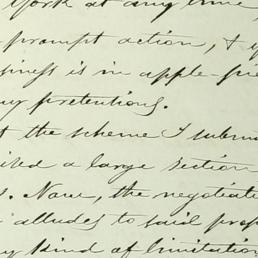 York at any time,
prompt action, &
siness is in apple-pie
pretentions.
the scheme I subm
a large section
. Now, the negotiat
alludes to said prop
kind of limitation